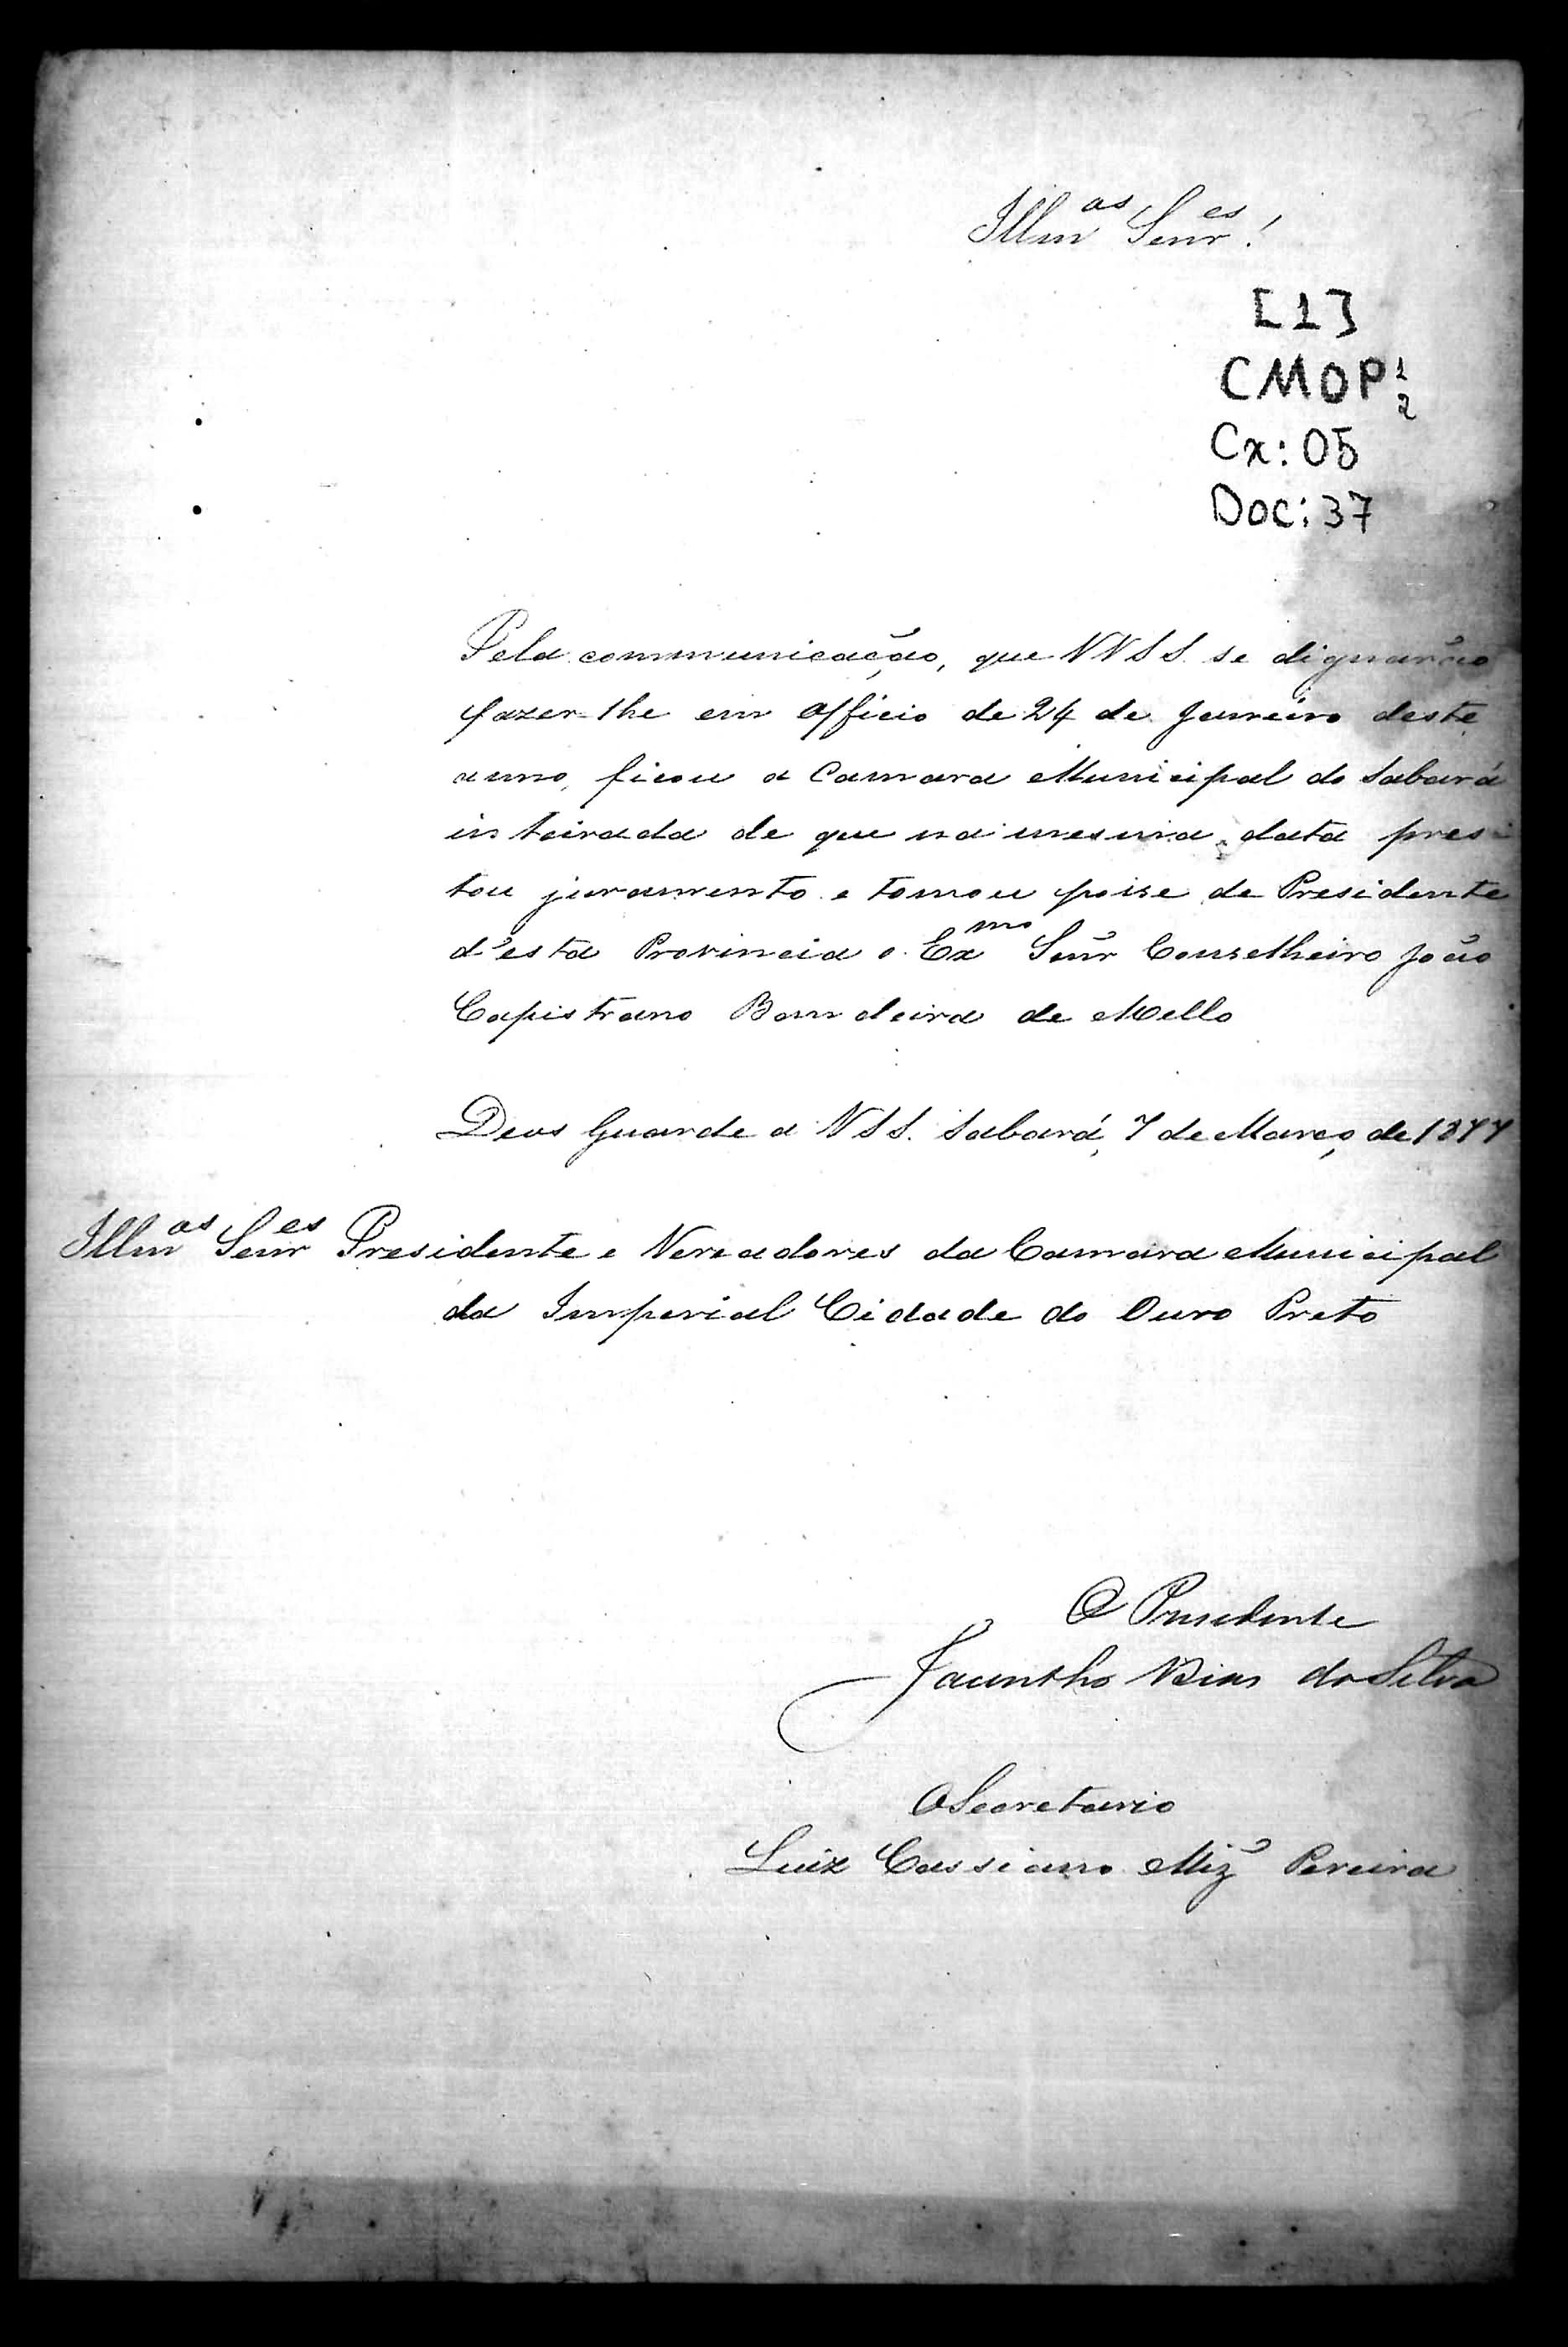 Illm^os Senr^es!
[1]
CMOP 1/2
Cx: 05
Doc: 37
Pela communicação, que VVSS. se dignarão
fazer-lhe em officio de 24 de Janeiro deste
anno, ficou a Camara Municipal do Sabará
inteirada de que na mesma data pres-
tou juramento e tomou posse de Presidente
d'esta Provincia o Ex^mo Senr̃ Conselheiro João
Capistrano Bandeira de Mello
Deos Guarde a VSS. Sabará, 7 de Março de 1877
Illm^os Senr^es Presidente e Vereadores da Camara Municipal
da Imperial Cidade do Ouro Preto
O Presidente
Jacintho Dias da Silva
O Secretario
Luiz Cassiano Miz̃ Pereira